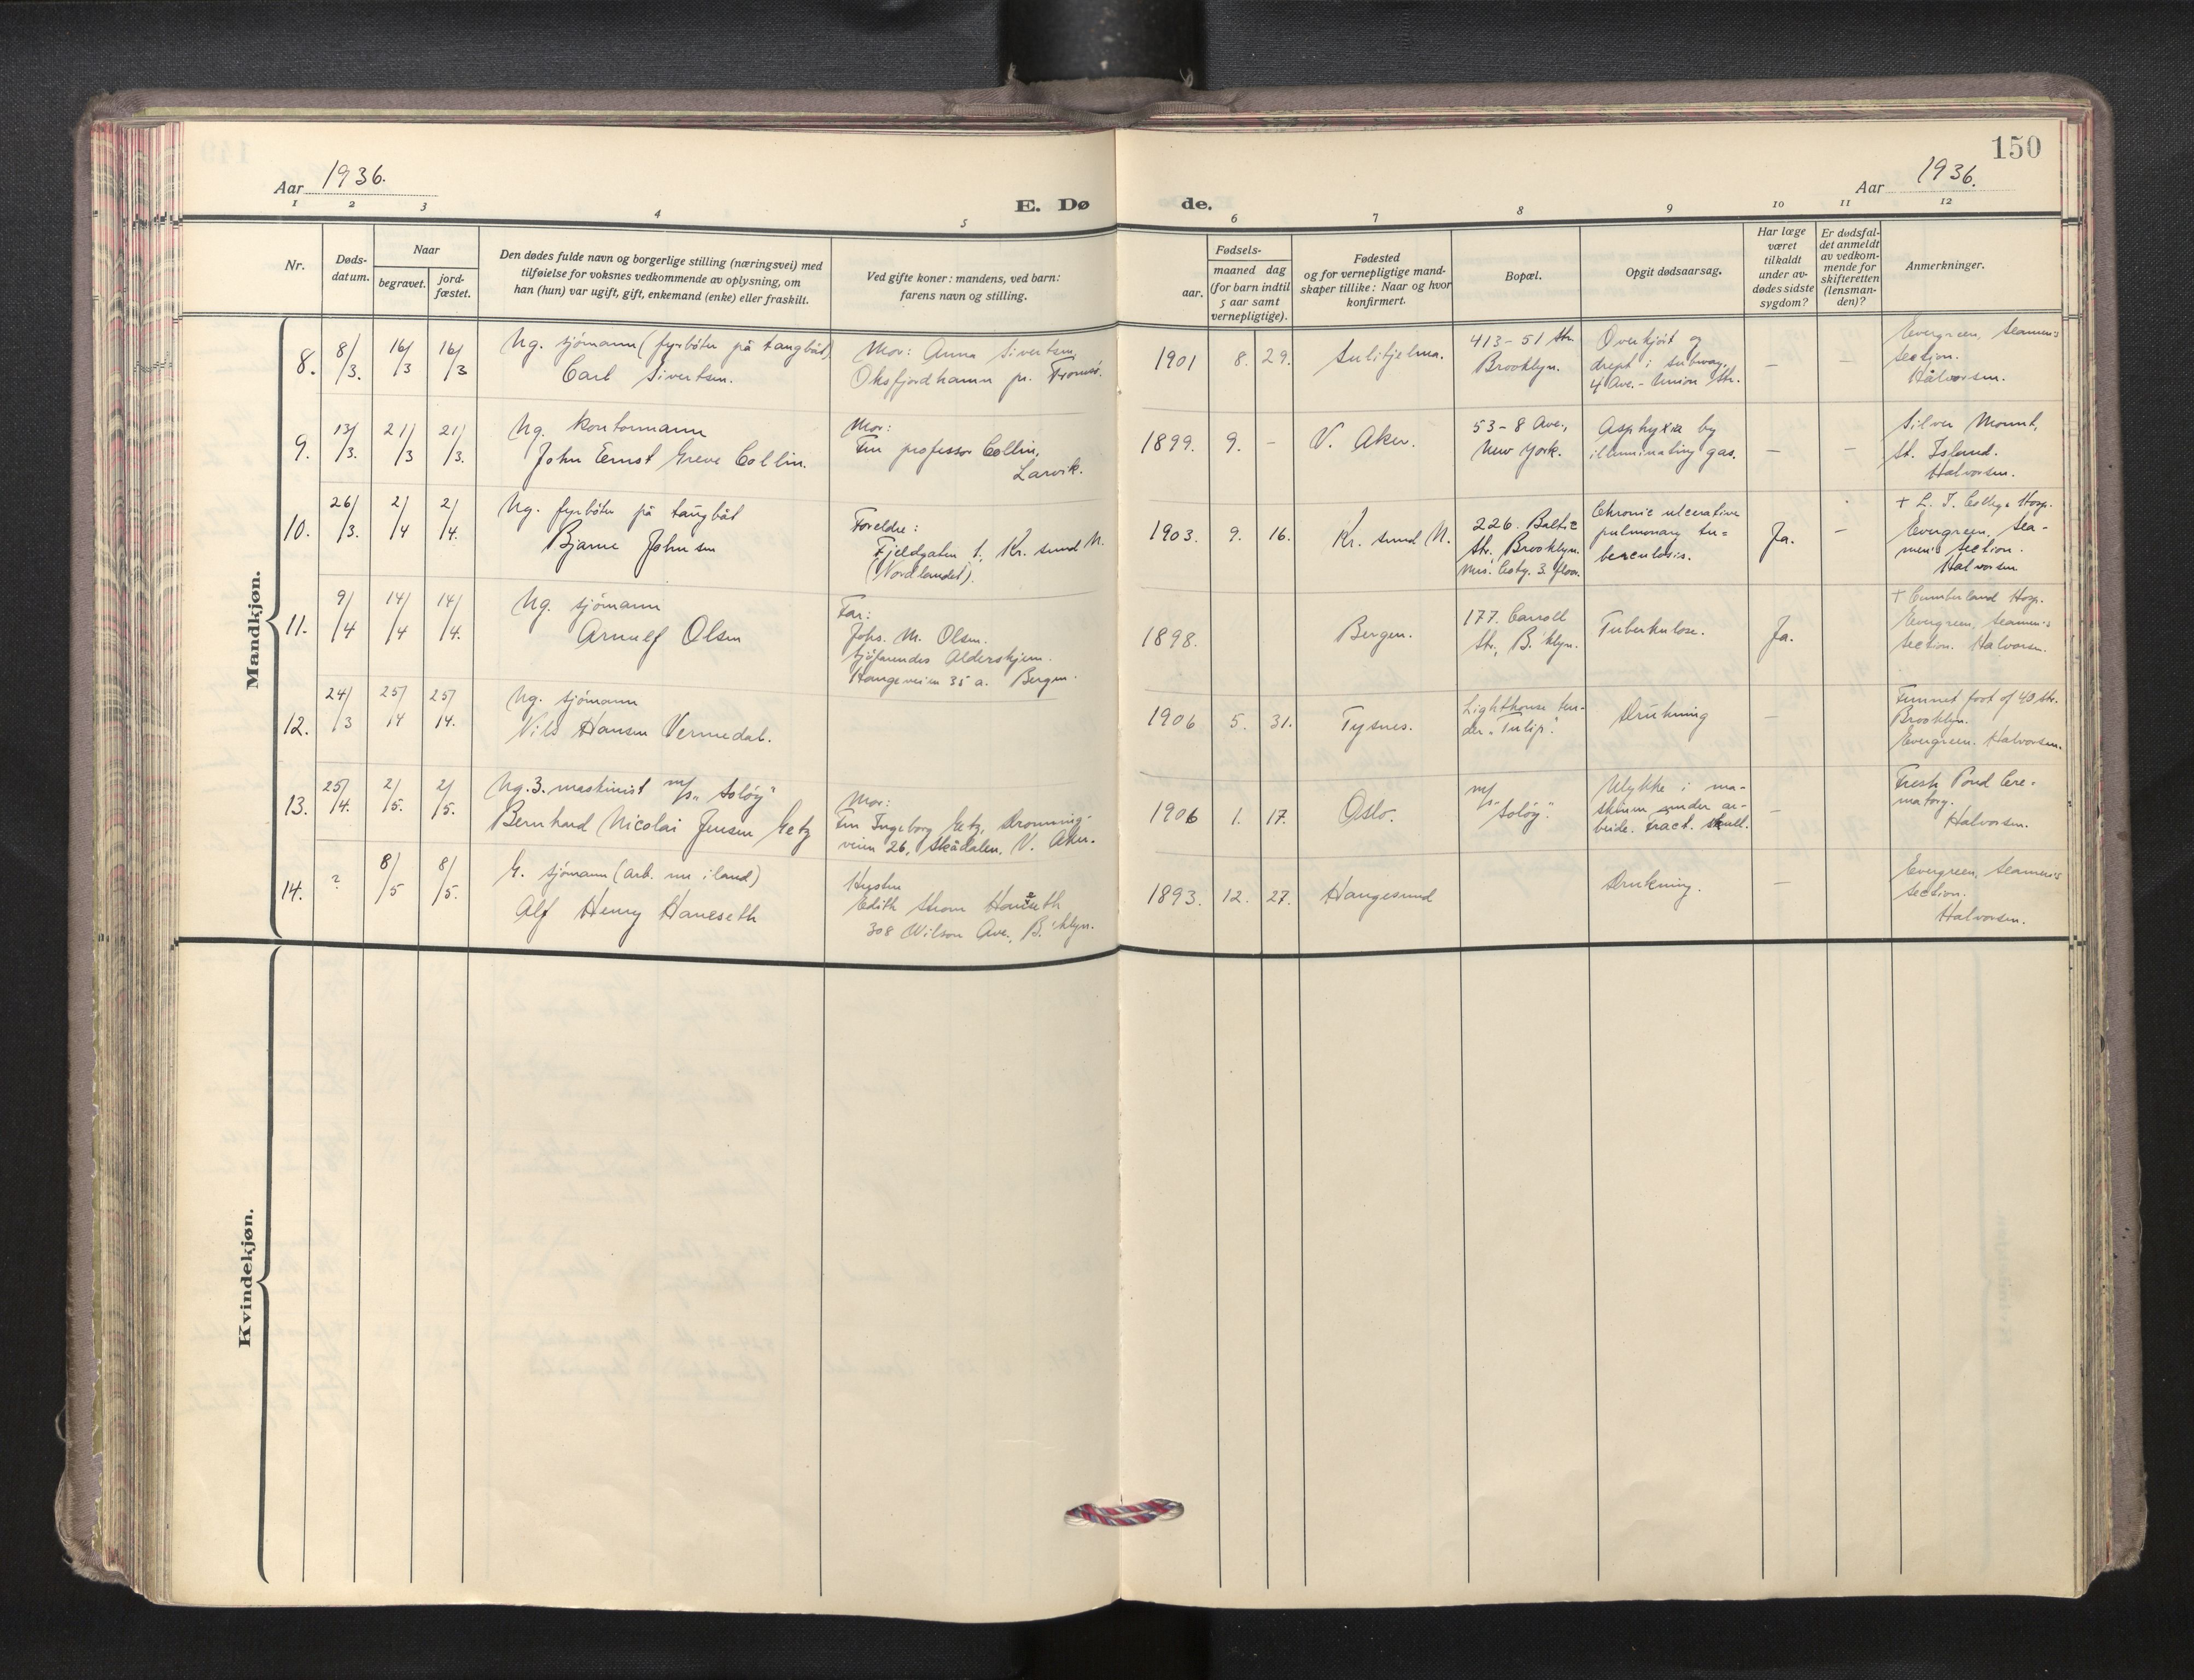 150
Aar 1936.
Aar 1936.
E. Dø
de.
1 2 3 4 5 6 7 8 9 10 11 12
Nr.
Døds-
datum.
Naar
begravet.
jord-
fæstet.
Den dødes fulde navn og borgerlige stilling (næringsvei) med
tilføielse for voksnes vedkommende av oplysning, om
han (hun) var ugift, gift, enkemand (enke) eller fraskilt.
Ved gifte koner: mandens, ved barn:
farens navn og stilling.
Fødsels-
aar.
maaned dag
(for barn indtil
5 aar samt
vernepligtige).
Fødested
og for vernepligtige mand-
skaper tillike: Naar og hvor
konfirmert.
Bopæl.
Opgit dødsaarsag.
Har læge
været
tilkaldt
under av-
dødes sidste
sygdom?
Er dødsfal-
det anmeldt
av vedkom-
mende for
skifteretten
(lensman-
den)?
Anmerkninger.
Mandkjøn.
8.
8/3.
16/3
16/3
Ug. sjömann (fyrböter på taugbåt)
Carl Sivertsen.
Mor: Anna Sivertsen,
Oksfjordhamn pr. Tromsö.
1901 8. 29.
Sulitjelma.
413-51 Str.
Brooklyn.
Overkjört og
drept i subway,
4 Ave. - Union Str.
–
–
Evergreen, Seamen's
section.
Halvorsen.
9.
13/3.
21/3
21/3.
Ug. kontormann
John Ernst Greve Collin.
Mor:
Fru professor Collin,
Larvik.
1899. 9. –
V. Aker.
53-8 Ave.,
New York.
Asphyxia by
illuminating gas.
–
–
Silver Mount,
St. Island.
Halvorsen.
10.
26/3.
2/4
2/4.
Ug. fyrböter på taugbåt
Bjarne Johnsen
Foreldre:
Fjeldgaten 1, Kr. sund N.
(Nordlandet).
1903. 9. 16.
Kr. sund N.
226. Baltic
Str. Brooklyn.
3. floor.
Chronic ulcerative
pulmonary tu=
berculosis.
Ja.
–
+ L. I. College Hosp.
Evergreen, Sea-
men's section.
Halvorsen
11.
9/4
14/4
14/4.
Ug. sjömann
Arnulf Olsen
Far:
Johs. M. Olsen.
Sjöfarendes Aldershjem.
Haugeveien 35 a. Bergen.
1898.
Bergen.
177. Carroll
Str., B.'klyn.
Tuberkulose.
Ja.
+ Cumberland Hosp.
Evergreen, Seamen's
section. Halvorsen.
12.
24/3
25/4
25/4.
Ug. sjömann
Nils Hansen Vermedal.
1906 5. 31.
Tysnes.
Lighthouse ten-
der "Tulip".
Drukning
–
Funnet foot of 40 Str.
Brooklyn.
Evergreen. Halvorsen.
13.
25/4.
2/5.
2/5.
Ug. 3. maskinist m/s "Solöy"
Bernhard Nicolai Jensen Getz
Mor:
Fru Ingeborg Getz, Dronning-
veien 26, Skådalen, V. Aker.
1906 1. 17.
Oslo.
m/s
"Solöy".
Ulykke i ma-
skinen under ar-
beide. Fract. skull.
–
Fresh Pond Cre-
matory.
Halvorsen.
14.
?
8/5
8/5.
G. sjömann (arb. nu i land)
Alf Henry Haneseth
Hustru
Edith Strom Haneseth
308 Wilson Ave., B.'klyn.
1893. 12. 27.
Haugesund
Drukning.
–
Evergreen, Seamen's
section.
Halvorsen.
Kvindekjøn.